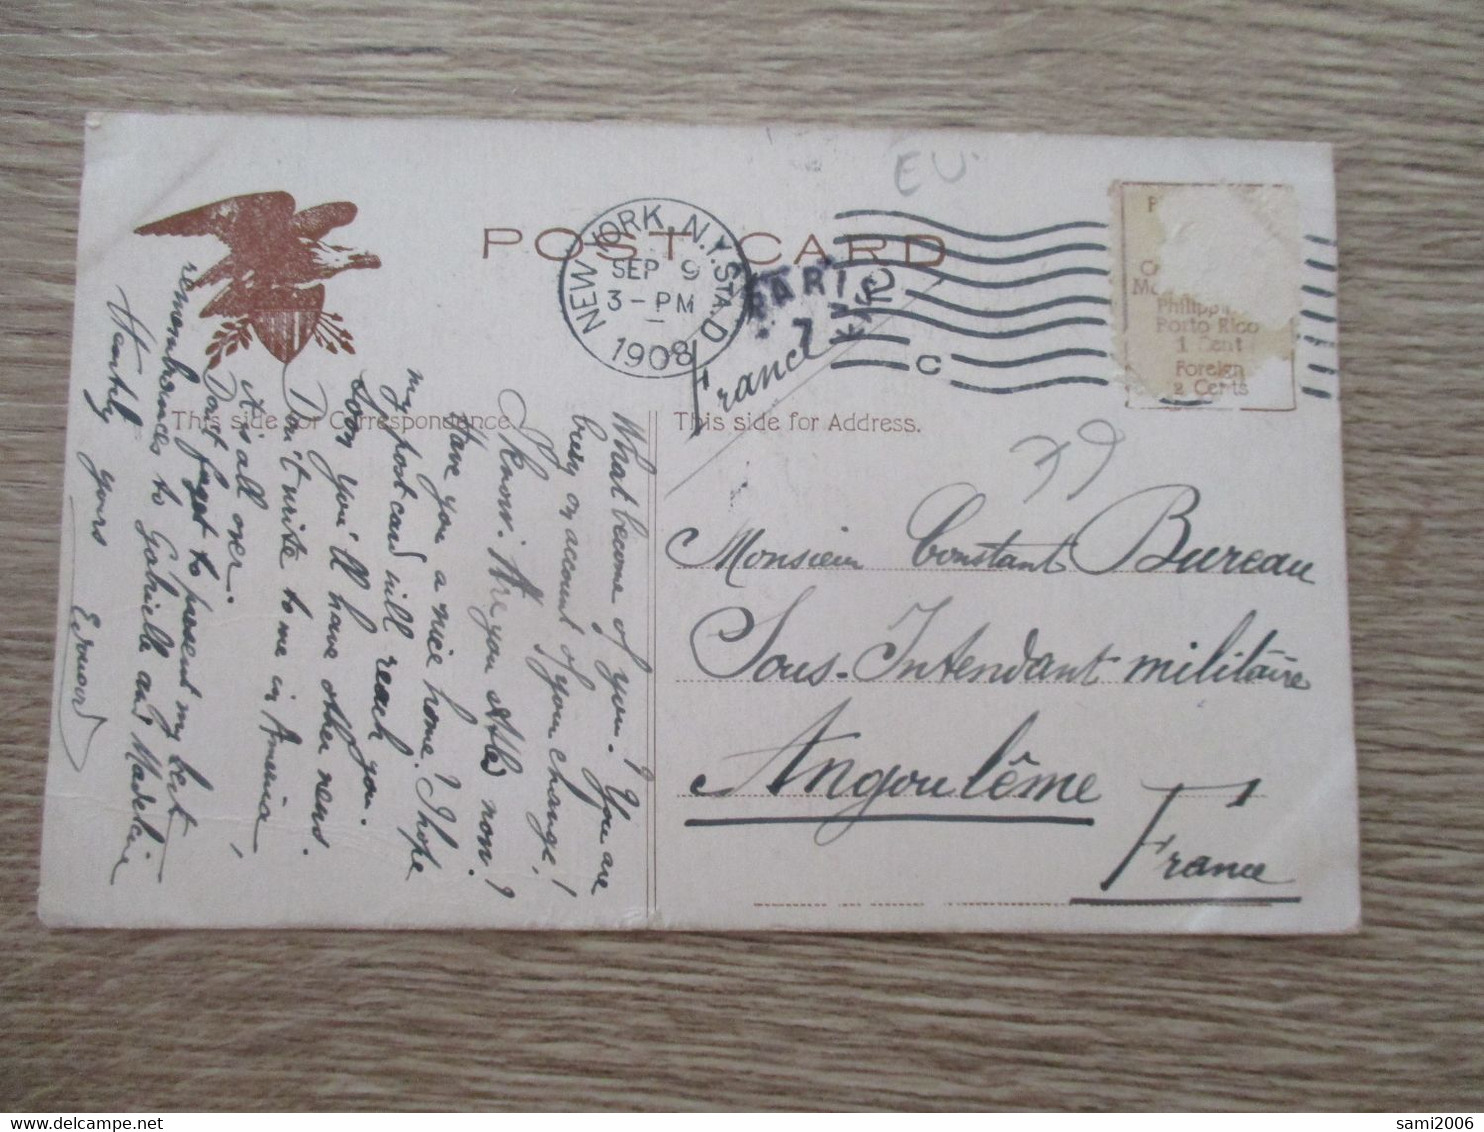 EU.
POST CARD
NEW YORK, N.Y. STA. D
SEP 9
3-PM
1908
PARIS
7
C
France
Philipp
Porto Rico
1 Cent
Foreign
2 Cents
This side for Correspondence.
This side for Address.
Monsieur Constant Bureau
Sous-Intendant militaire
Angoulême
France
What become of you? You are
busy on account of your change!
I know. Are you now?
Have you a nice home? I hope
my post card will reach you.
Soon you'll have other news.
Don't write to me in America,
it is all over.
Don't forget to present my best
remembrances to Gabrielle and Madeleine
Heartily yours
Edouard
sami2006